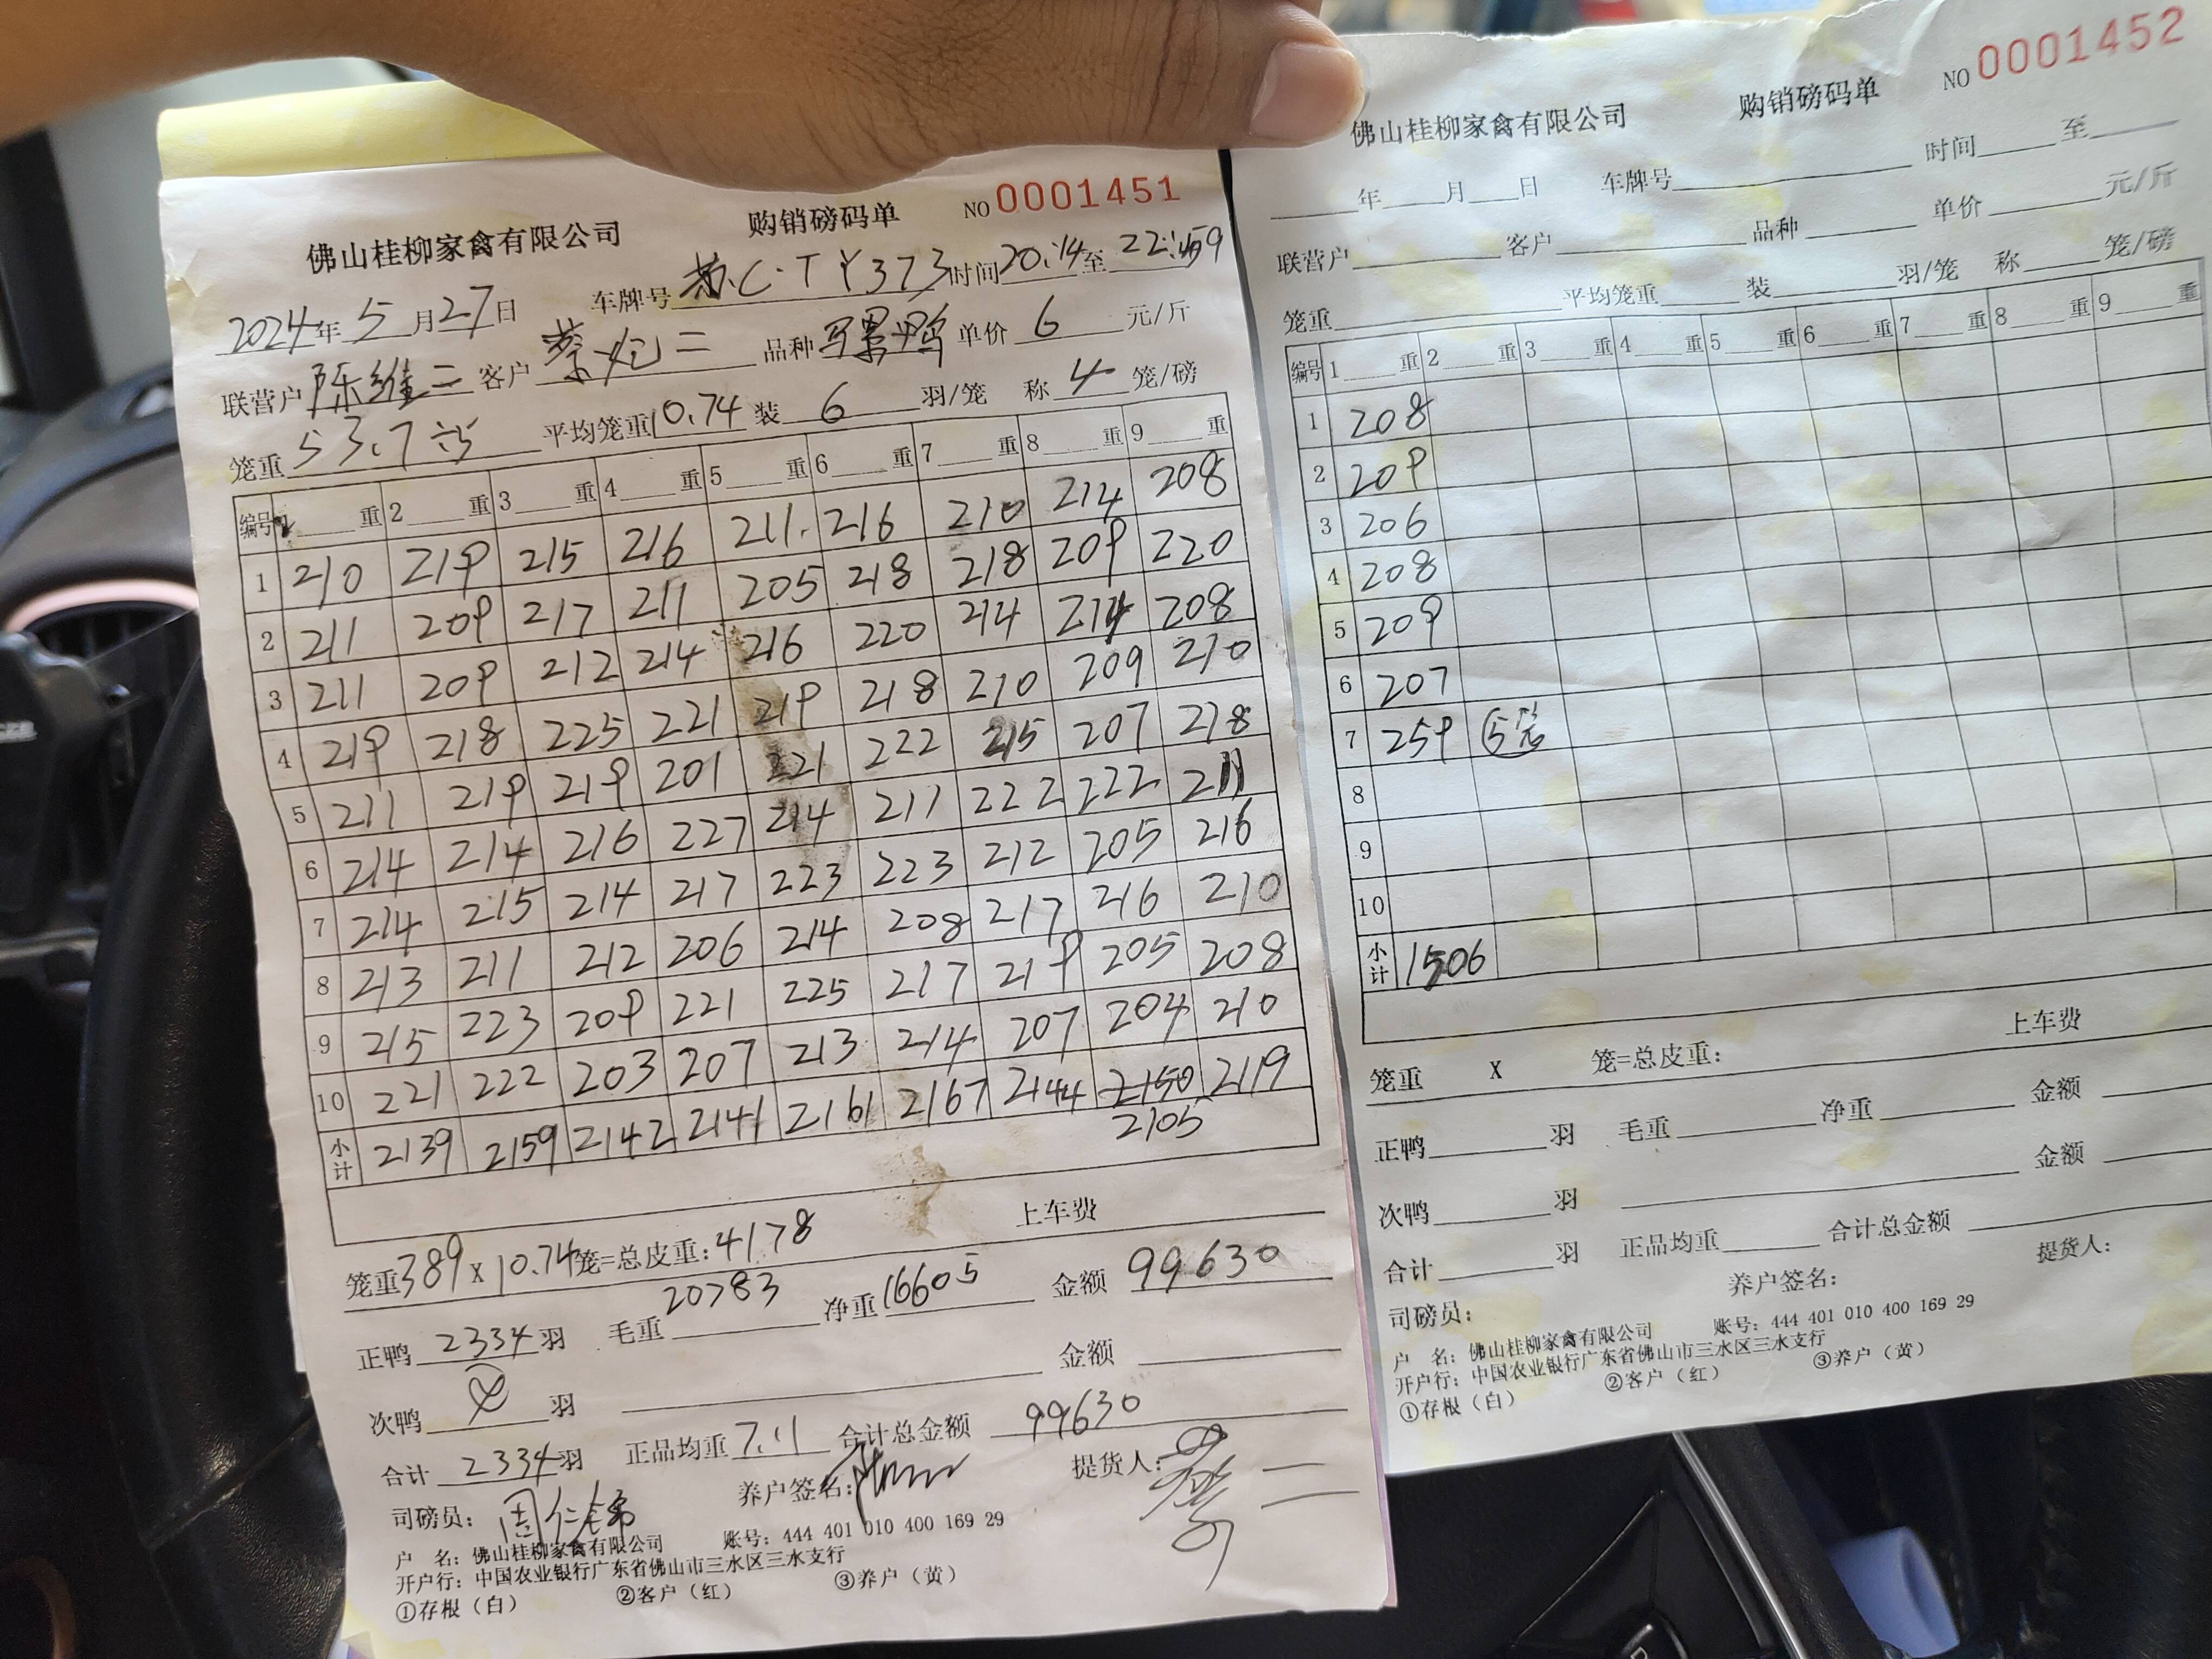 佛山桂柳家禽有限公司 购销磅码单 NO 0001451
2024年 5 月 27 日 车牌号 苏C·TY373 时间 20:14 至 22:59
联营户 陈维二 客户 蔡炮二 品种 骡鸭 单价 6 元/斤
笼重 53.7÷5 平均笼重 10.74 装 6 羽/笼 称 4 笼/磅
编号 1 重 2 重 3 重 4 重 5 重 6 重 7 重 8 重 9 重
1 210 219 215 216 211. 216 210 214 208
2 211 209 217 211 205 218 218 209 220
3 211 209 212 214 216 220 214 214 208
4 219 218 225 221 219 218 210 209 210
5 211 219 219 201 221 222 215 207 218
6 214 214 216 227 214 211 222 222 211
7 214 215 214 217 223 223 212 205 216
8 213 211 212 206 214 208 217 216 210
9 215 223 209 221 225 217 219 205 208
10 221 222 203 207 213 214 207 204 210
小计 2139 2159 2142 2141 2161 2167 2144 2150 2119
2105
上车费
笼重 389 X 10.74 笼=总皮重: 4178
正鸭 2334 羽 毛重 20783 净重 16605 金额 99630
次鸭 羽 金额
合计 2334 羽 正品均重 7.11 合计总金额 99630
司磅员: 养户签名: 提货人:
户 名: 佛山桂柳家禽有限公司 账号: 444 401 010 400 169 29
开户行: 中国农业银行广东省佛山市三水区三水支行
①存根（白） ②客户（红） ③养户（黄）
佛山桂柳家禽有限公司 购销磅码单 NO 0001452
年 月 日 车牌号 时间 至
联营户 客户 品种 单价 元/斤
笼重 平均笼重 装 羽/笼 称 笼/磅
编号 1 重 2 重 3 重 4 重 5 重 6 重 7 重 8 重 9 重
1 208
2 209
3 206
4 208
5 209
6 207
7 259 5笼
8
9
10
小计 1506
上车费
笼重 X 笼=总皮重:
正鸭 羽 毛重 净重 金额
次鸭 羽 金额
合计 羽 正品均重 合计总金额
司磅员: 养户签名: 提货人:
户 名: 佛山桂柳家禽有限公司 账号: 444 401 010 400 169 29
开户行: 中国农业银行广东省佛山市三水区三水支行
①存根（白） ②客户（红） ③养户（黄）